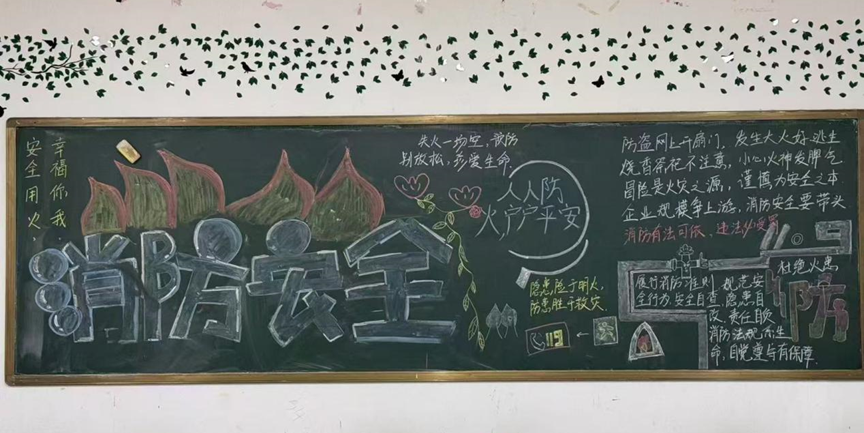 安全用火
幸福你我
消防安全
失火一切空,
别放松,珍爱生命
人人防
火户户平安
隐患险于明火,
防患胜于救灾.
119
防盗网上开扇门,发生大火好逃生
烧香点花不注意,小心火神发脾气
冒险是火灾之源,谨慎为安全之本
企业规模争上游,消防安全要带头
消防有法可依、违法必受罚
119
杜绝火患
履行消防准则 规范安
全行为 安全自查 隐患自
改 责任自负
消防法规
命,自觉遵守有保障.
防